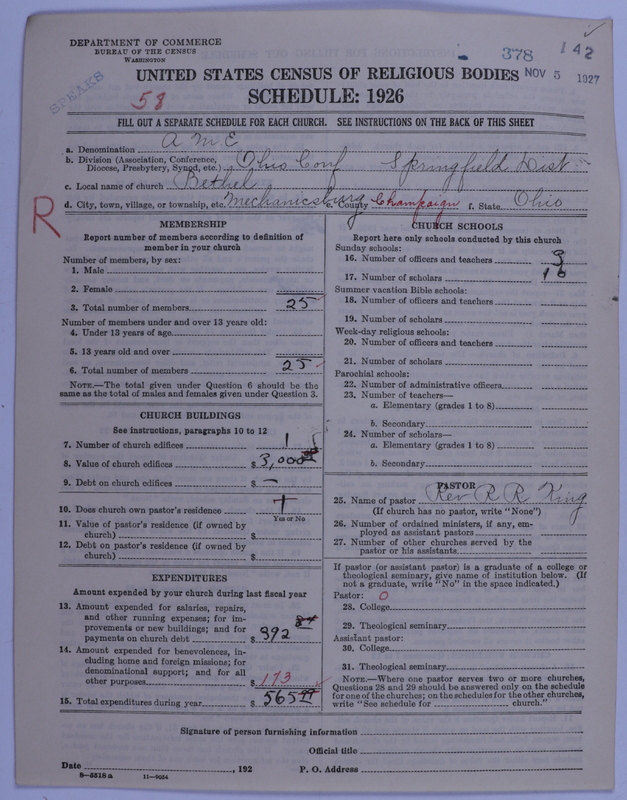 DEPARTMENT OF COMMERCE
BUREAU OF THE CENSUS
WASHINGTON
378
142
NOV 5 1927
SPEAKS
UNITED STATES CENSUS OF RELIGIOUS BODIES
58
SCHEDULE: 1926
FILL OUT A SEPARATE SCHEDULE FOR EACH CHURCH. SEE INSTRUCTIONS ON THE BACK OF THIS SHEET
a. Denomination A M E
b. Division (Association, Conference, Diocese, Presbytery, Synod, etc.) Ohio Conf Springfield Dist
c. Local name of church Bethel
d. City, town, village, or township, etc. Mechanicsburg e. County Champaign f. State Ohio
R
MEMBERSHIP
Report number of members according to definition of
member in your church
Number of members, by sex:
1. Male
2. Female
3. Total number of members 25
Number of members under and over 13 years old:
4. Under 13 years of age
5. 13 years old and over
6. Total number of members 25
NOTE.—The total given under Question 6 should be the
same as the total of males and females given under Question 3.
CHURCH BUILDINGS
See instructions, paragraphs 10 to 12
7. Number of church edifices 1
8. Value of church edifices $ 3,000
9. Debt on church edifices $ —
10. Does church own pastor's residence
Yes or No
11. Value of pastor's residence (if owned by
church) $
12. Debt on pastor's residence (if owned by
church) $
EXPENDITURES
Amount expended by your church during last fiscal year
13. Amount expended for salaries, repairs,
and other running expenses; for im-
provements or new buildings; and for
payments on church debt $ 392
14. Amount expended for benevolences, in-
cluding home and foreign missions; for
denominational support; and for all
other purposes $ 173
15. Total expenditures during year $ 565
CHURCH SCHOOLS
Report here only schools conducted by this church
Sunday schools:
16. Number of officers and teachers 3
17. Number of scholars 16
Summer vacation Bible schools:
18. Number of officers and teachers
19. Number of scholars
Week-day religious schools:
20. Number of officers and teachers
21. Number of scholars
Parochial schools:
22. Number of administrative officers
23. Number of teachers—
a. Elementary (grades 1 to 8)
b. Secondary
24. Number of scholars—
a. Elementary (grades 1 to 8)
b. Secondary
PASTOR
25. Name of pastor Rev R R King
(If church has no pastor, write "None")
26. Number of ordained ministers, if any, em-
ployed as assistant pastors
27. Number of other churches served by the
pastor or his assistants
If pastor (or assistant pastor) is a graduate of a college or
theological seminary, give name of institution below. (If
not a graduate, write "No" in the space indicated.)
Pastor: 0
28. College
29. Theological seminary
Assistant pastor:
30. College
31. Theological seminary
NOTE.—Where one pastor serves two or more churches,
Questions 28 and 29 should be answered only on the schedule
for one of the churches; on the schedules for the other churches,
write "See schedule for church."
Signature of person furnishing information
Official title
Date , 192 P. O. Address
8—5518a 11—9034